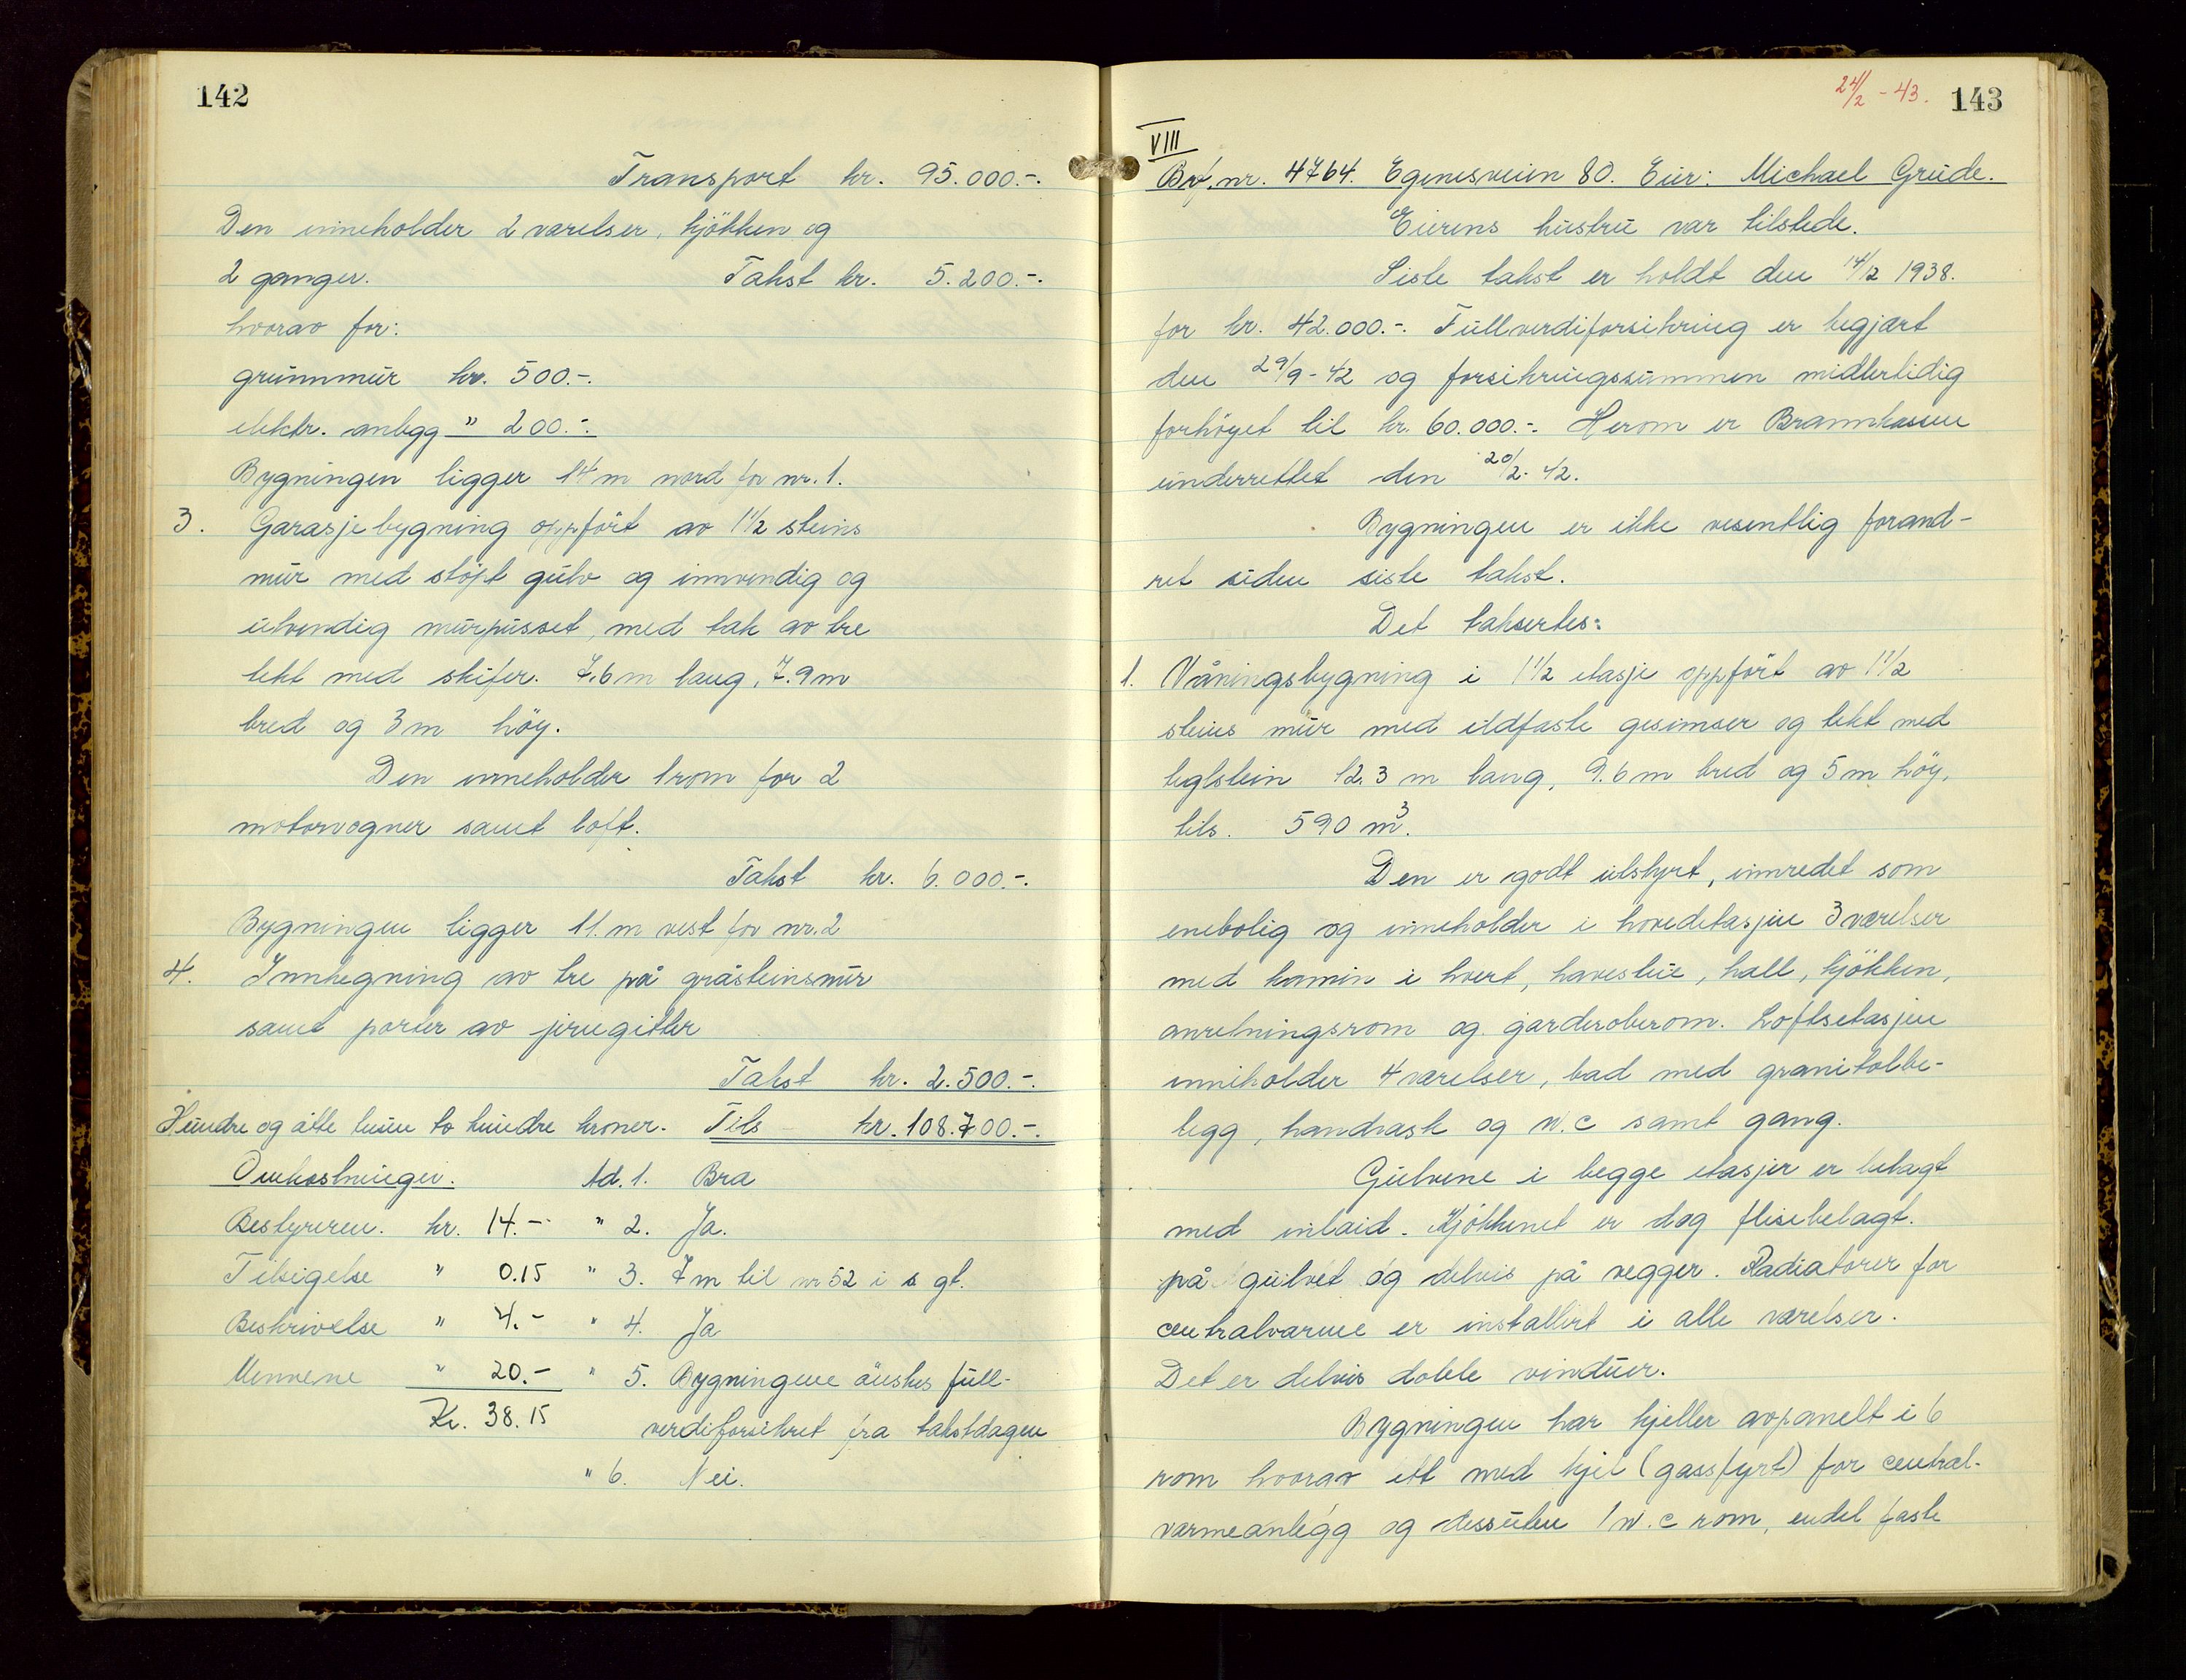 142
Transport kr. 95.000.-.
Den inneholder 2 værelser, kjökken og
2 ganger. Takst kr. 5.200.-.
hvorav for:
grunnmur kr. 500.-.
elektr. anlegg " 200.-.
Bygningen ligger 14 m nord for nr. 1.
3. Garasjebygning oppfört av 1 1/2 steins
mur med stöpt gulv og innvendig og
utvendig murpusset, med tak av tre
tekt med skifer. 7.6 m lang, 7.9 m
bred og 3 m höy.
Den inneholder 1 rom for 2
motorvogner samt loft.
Takst kr. 6.000.-.
Bygningen ligger 11. m vest for nr. 2
4. Innhegning av tre på gråsteinsmur
samt porter av jerngitter
Takst kr. 2.500.-.
Hundre og åtte tusen to hundre kroner. Tils kr. 108.700.-.
Omkostninger. Ad. 1. Bra
Bestyreren. kr. 14.- " 2. Ja.
Tilsigelse " 0.15 " 3. 7 m til nr 52 i s gt.
Beskrivelse " 4.- " 4. Ja
Mennene " 20.- " 5. Bygningene önskes full-
Kr. 38.15 verdiforsikret fra takstdagen
" 6. Nei.
24/2 - 43. 143
VIII
Brf. nr. 4764. Egenesveien 80. Eier: Michael Grude.
Eierens hustru var tilstede.
Siste takst er holdt den 14/2 1938.
for kr. 42.000.-. Fullverdiforsikring er begjært
den 29/9 - 42 og forsikringssummen midlertidig
forhöyet til kr. 60.000.-. Herom er Brannkassen
underrettet den 20/2. 42.
Bygningen er ikke vesentlig forand-
ret siden siste takst.
Det taksertes:
1. Våningsbygning i 1 1/2 etasje oppfört av 1 1/2
steins mur med ildfaste gesimser og tekt med
teglstein 12.3 m lang, 9.6 m bred og 5 m höy,
tils. 590 m3.
Den er godt utstyrt, innredet som
enebolig og inneholder i hovedetasjen 3 værelser
med kamin i hvert, havestue, hall, kjökken,
anretningsrom og garderoberom. Loftsetasjen
inneholder 4 værelser, bad med granitolbe-
legg, handvask og w.c samt gang.
Gulvene i begge etasjer er belagt
med inlaid. Kjökkenet er dog flisebelagt.
på gulvet og delvis på vegger. Radiatorer for
centralvarme er installert i alle værelser.
Det er delvis doble vinduer.
Bygningen har kjeller avpanelt i 6
rom hvorav ett med kjel (gassfyrt) for central-
varmeanlegg og dessuten 1 w.c rom, endel faste